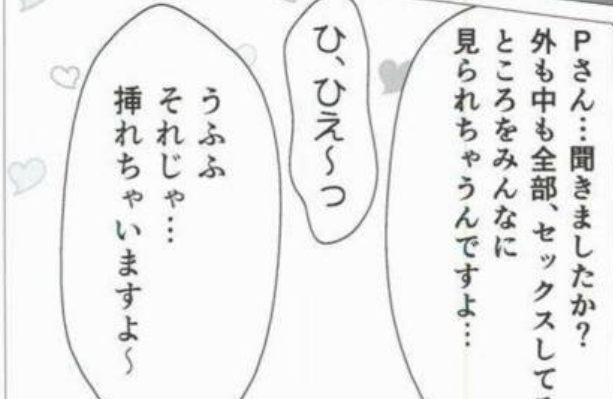 Pさん…聞きましたか?
外も中も全部、セックスして
ところをみんなに
見られちゃうんですよ…
ひ、ひえ～っ
うふふ
それじゃ…
挿れちゃいますよ～